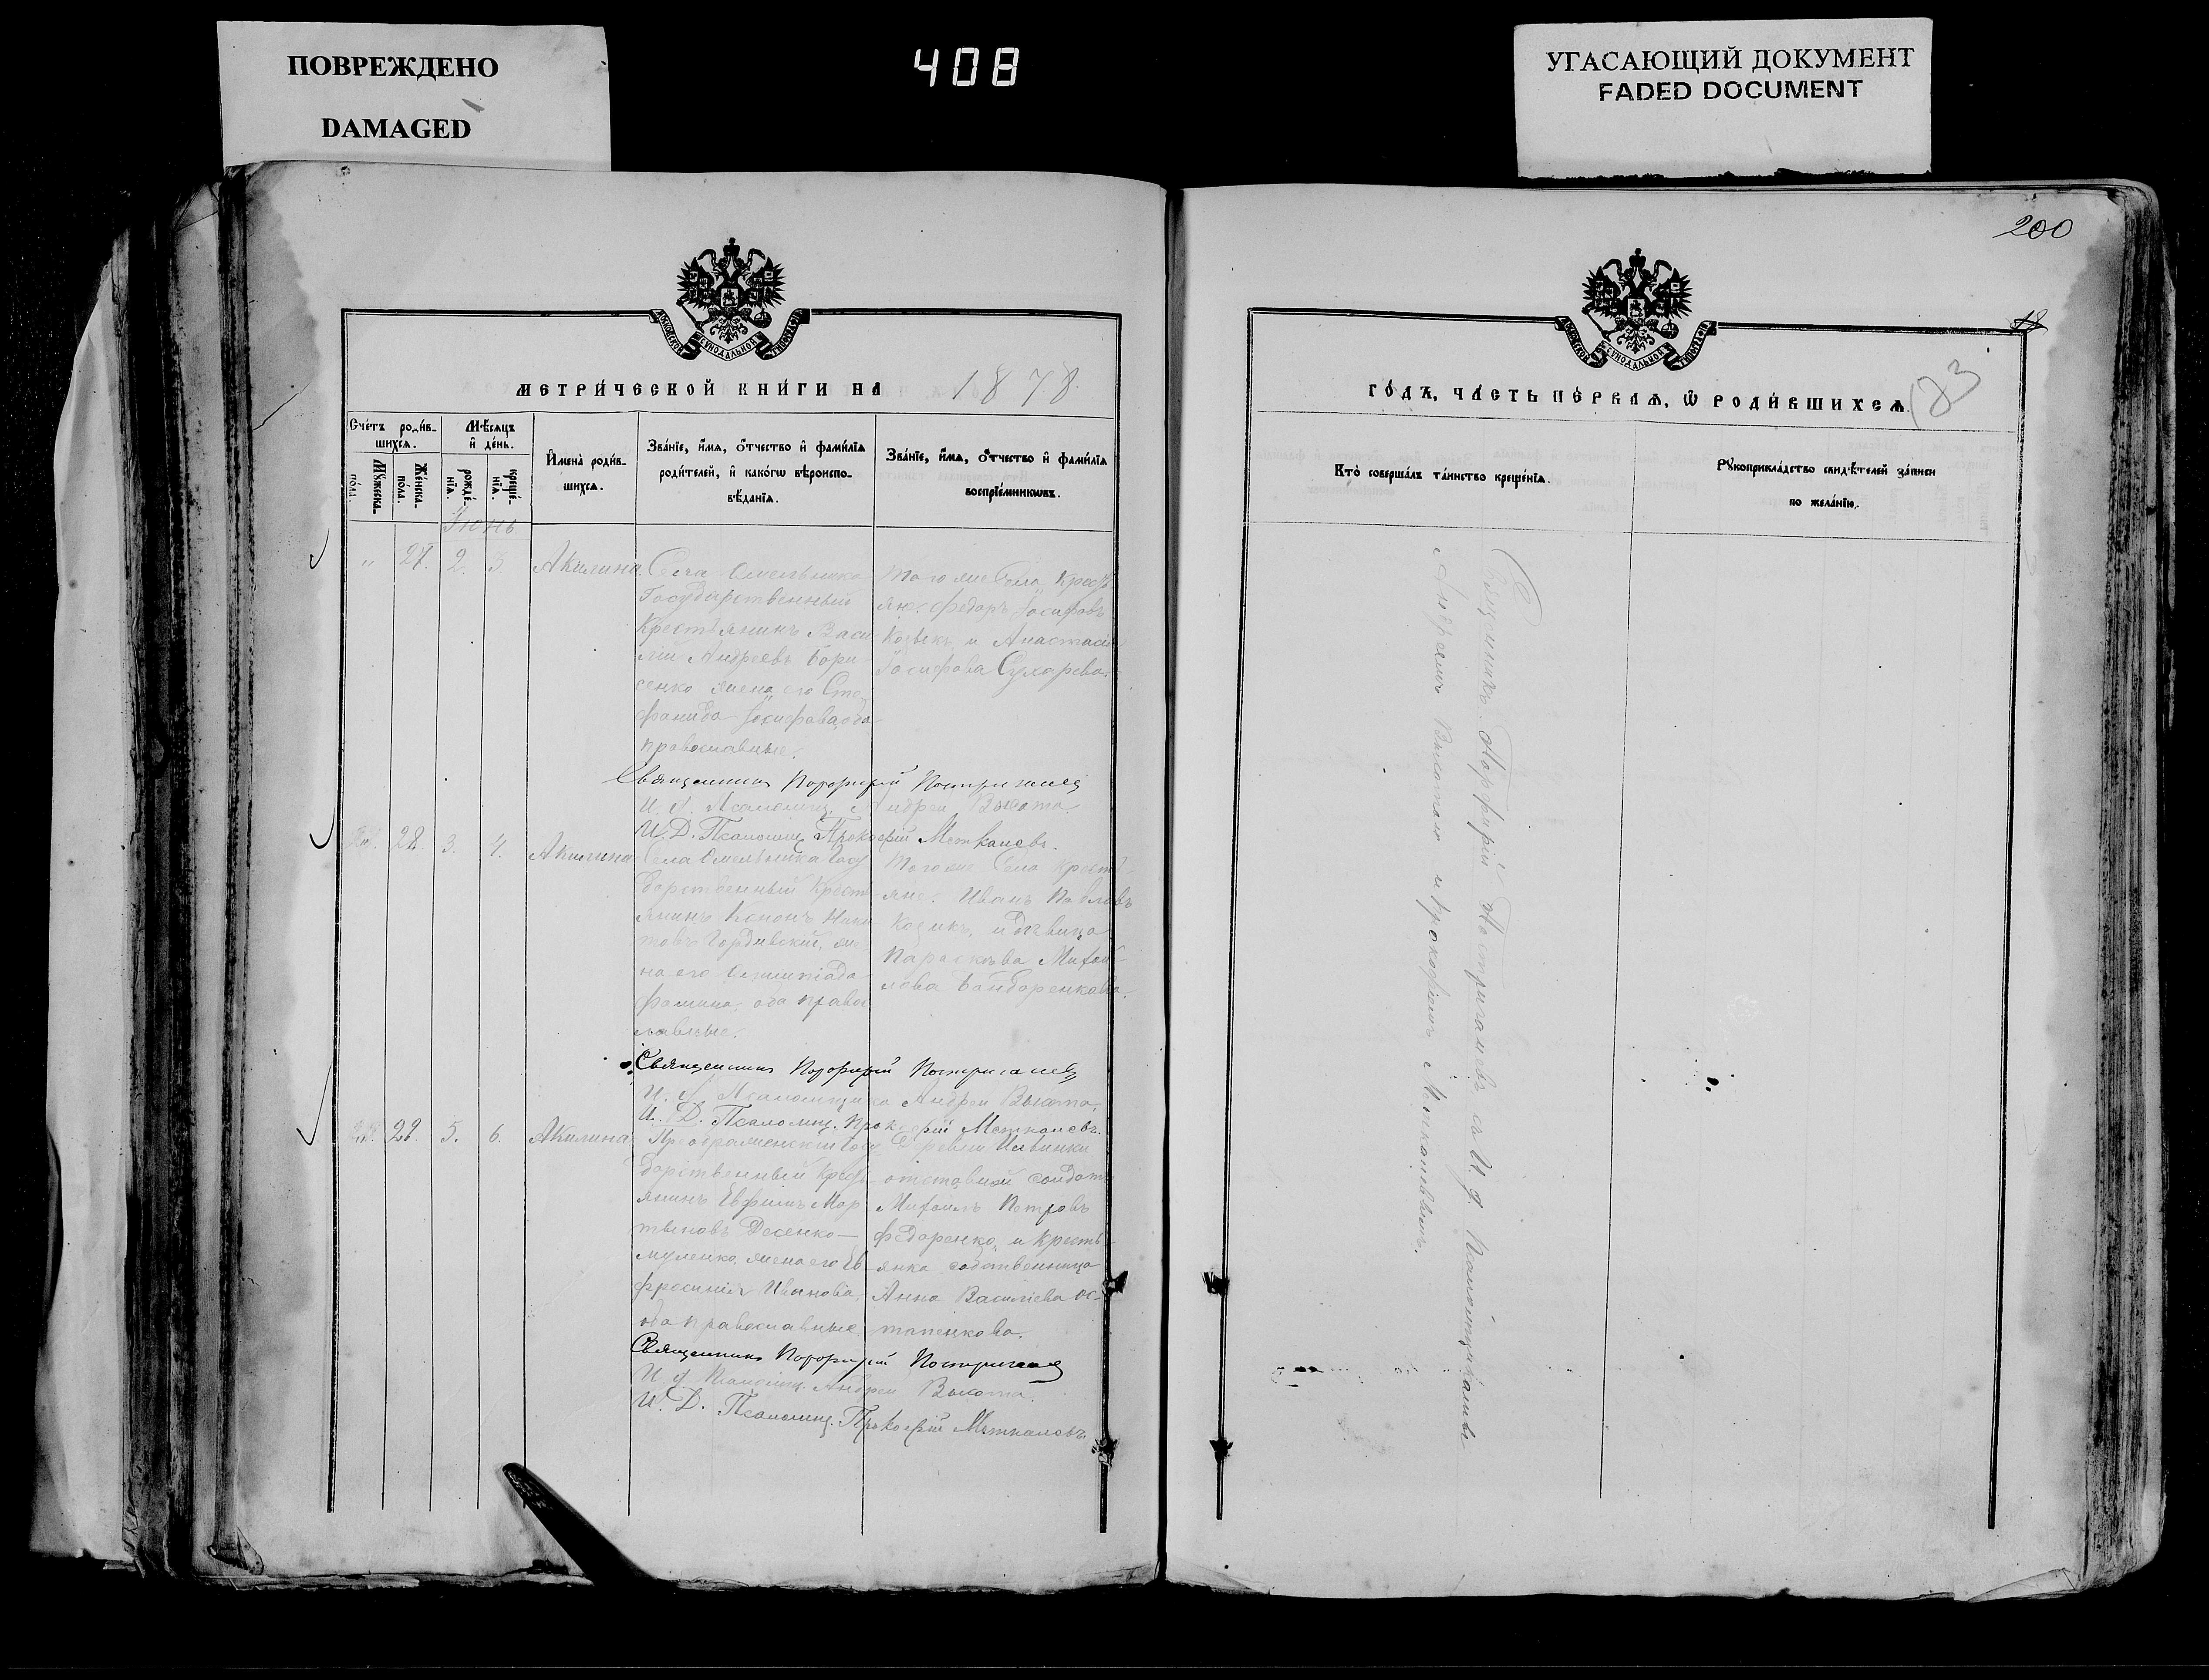 ПОВРЕЖДЕНО
DAMAGED
408
УГАСАЮЩИЙ ДОКУМЕНТ
FADED DOCUMENT
200
МЕТРИ́ЧЕСКОЙ КНИ́ГИ НА 1878.
Сче́тъ роди́в-
шихся.
Мѣ́сяцъ
и҆ де́нь.
Мꙋ́жеска
по́ла.
Же́нска
по́ла.
рожде́-
нїѧ.
креще́-
нїѧ.
И҆мена̀ роди́в-
шихсѧ.
Зва́нїе, и҆́мѧ, ѻ҆́тчество и҆ фами́лїѧ
роди́телей, и҆ како́гѡ вѣроиспо-
вѣ́данїѧ.
Зва́нїе, и҆́мѧ, ѻ҆́тчество и҆ фами́лїѧ
воспрїе́мникѡвъ.
Іюнь
" 27. 2. 3. Акилина
Села Омельника
Государственный
Крестьянинъ Васи
лий Андреевъ Бори
сенко жена его Сте
фанида Іосифова, оба
православные.
того же Села Крест
яне: Федоръ Іосифовъ
Козыкъ и Анастасія
Іосифова Сухарева.
Священникъ Порфирій
И. Д. Псаломщ. Андрей Высота
И. Д. Псаломщ. Прокофій Меткалевъ.
28. 3. 4. Акилина
Села Омельника Госу
дарственный Крест
янинъ Кононъ Ники
товъ Гордивскій, же
на его Олимпіада
Фомина, оба право
славные.
того же Села крестъ
яне: Иванъ Павловъ
Козикъ, и дѣвица
Параскева Михаи
лова Бондаренкова.
Священникъ Порфирій
И. Д. Псаломщика Андрей Высота.
И. Д. Псаломщ. Прокофій Меткалевъ.
29. 5. 6. Акилина
Преображенскій Госу
дарственный Крест
янинъ Ефимъ Мар
тыновъ Десенко
муленко, жена его Ев
фросинія Иванова,
оба православные.
Деревни Ильинки
отставной солдатъ
Михаилъ Петровъ
Федоренко, и Кресть
янка собственница
Анна Василіева Ос-
тапенкова.
Священникъ Порфирій
И. Д. Псаломщ. Андрей Высота.
И. Д. Псаломщ. Прокофій Меткаловъ.
ГО́ДЪ, ЧА́СТЬ ПЕ́РВАѦ, Ѽ РОДИ́ВШИХСѦ.
Кто̀ соверша́лъ та́инство креще́нїѧ.
Рꙋкоприкла́дство свидѣ́телей за́писи
по жела́нїю.
Священникъ Порфирій Постригачевъ съ И. Д. Псаломщиками
Андреемъ Высотою и Прокофіемъ Меткалевымъ.